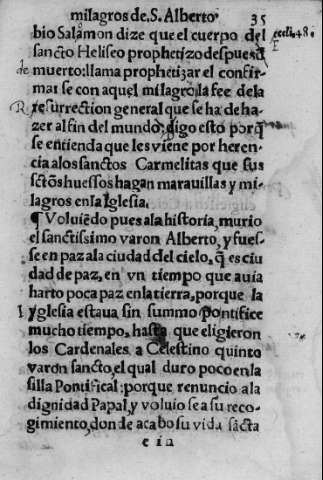 milagros de. S. Alberto· 35
bio Salamon dize que el cuerpo del eccli. 48.
sancto Heliseo prophetizo despues d̃
muerto: llama prophetizar el confir-
mar se con aquel milagro, la fee de la
resurrection general que se ha de ha-
zer al fin del mundo; digo esto porq̃
se entienda que les viene por heren-
cia a los sanctos Carmelitas que sus
sctõs huessos hagan marauillas y mi-
lagros en la Iglesia.
¶ Voluiẽdo pues a la historia, murio
el sanctissimo varon Alberto, y fues-
se en paz a la ciudad del cielo, q̃ es ciu
dad de paz, en vn tiempo que auia
harto poca paz en la tierra, porque la
yglesia estaua sin summo Pontifice
mucho tiempo, hasta que eligieron
los Cardenales a Celestino quinto
varon sancto, el qual duro poco en la
silla Pontifical: porque renuncio a la
dignidad Papal, y voluio se a su reco-
gimiento, don de acabo su vida sãcta
e in